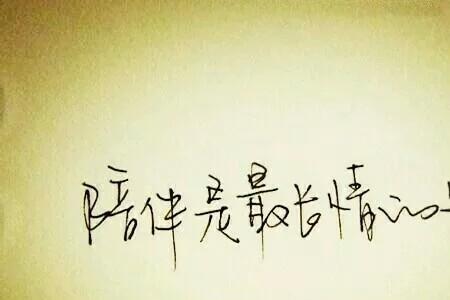 陪伴是最长情的